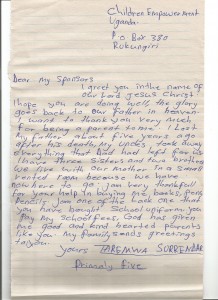 Children Empowerment
Uganda
P.O Box 330
Rukungiri
Dear My Sponsors
I greet you in the name of
our Lord Jesus Christ I
hope you are doing well, the glory
goes back to our father in heaven
I want to thank you very much
for being a parent to me. I Lost
My father about five years ago
after his death, My uncles took away
everything he had left for us
I have three sisters and two brothers
We live with our mother in a small
rented room because we have
nowhere to go. I am very thankfull
for your help in buying me books, pens
Pencils, I am one of the lucky one that
you have bought school uniform, you
pay my school fees, God has given
me good and hearted parents
like you. My family sends greetings
to you.
yours TAREMWA SURRENDAR
Primaly five